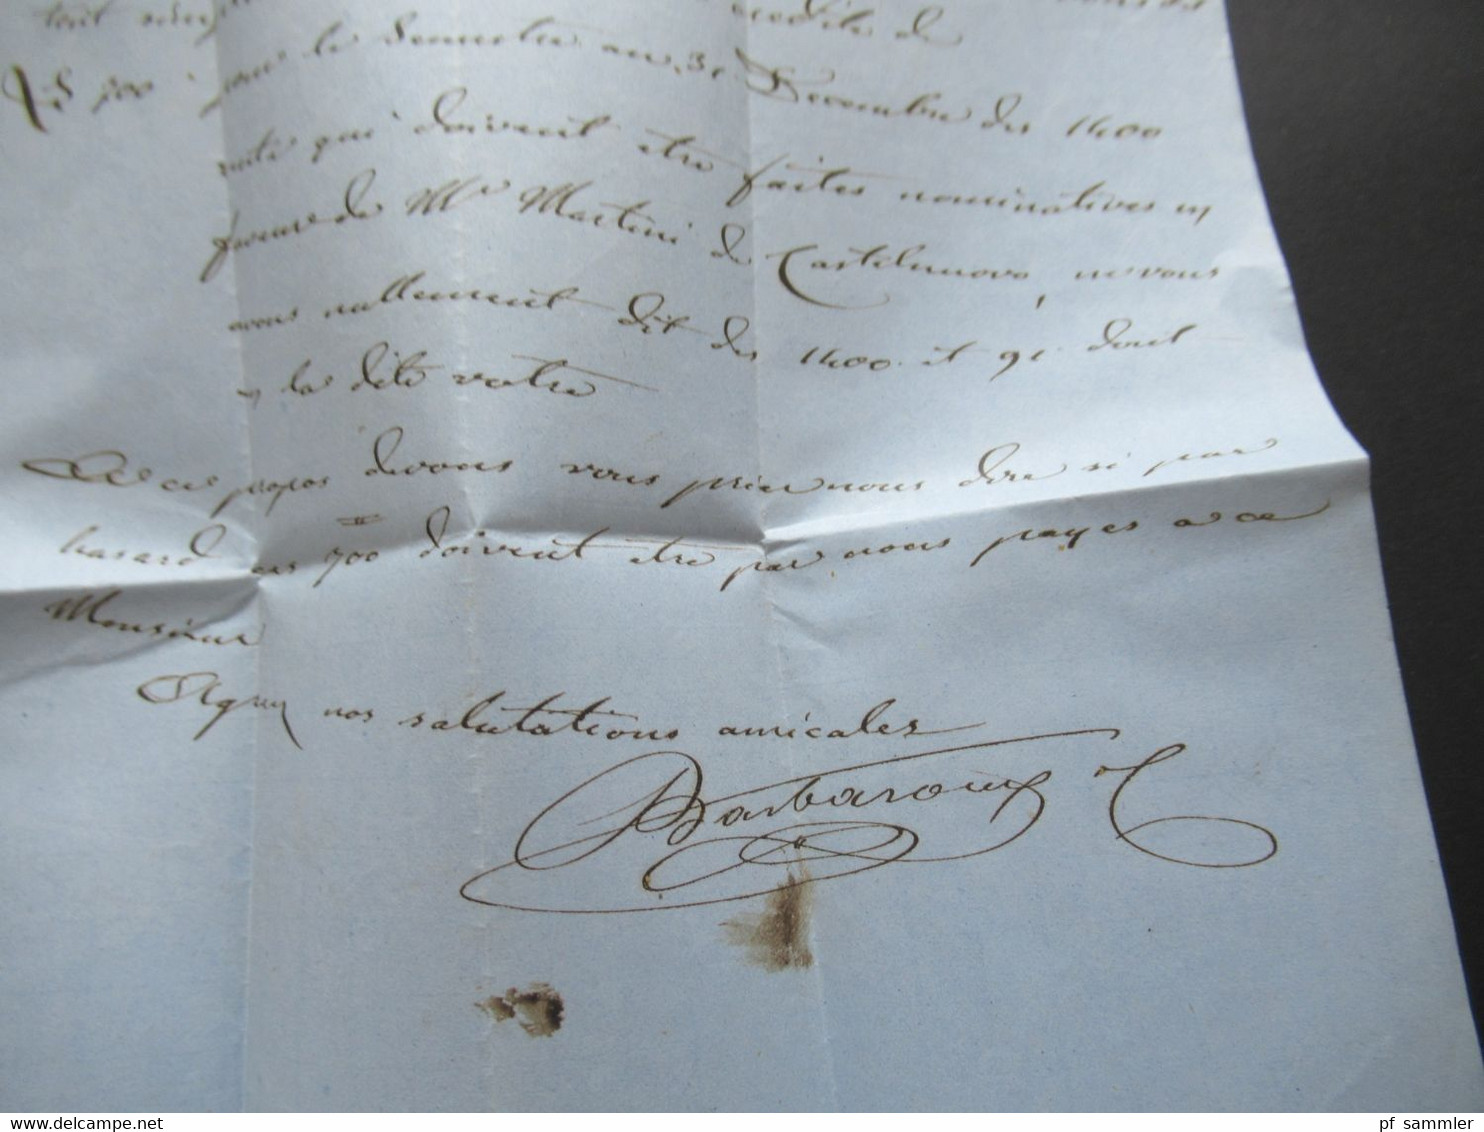 tout
crédite de
700 pour le Semestre au 31 Decembre des 1400
rente qui doivent être faites nominatives en
faveur de Mr Martini de Castelnuovo, ne vous
avons nullement dit des 1400. et qe. doit
la dite votre
A ce propos devons vous prier nous dire si par
hasard ces 700 doivent être par nous payes a ce
Monsieur
Agreez nos salutations amicales
Barbaroux C
pf sammler
Delcampe.net